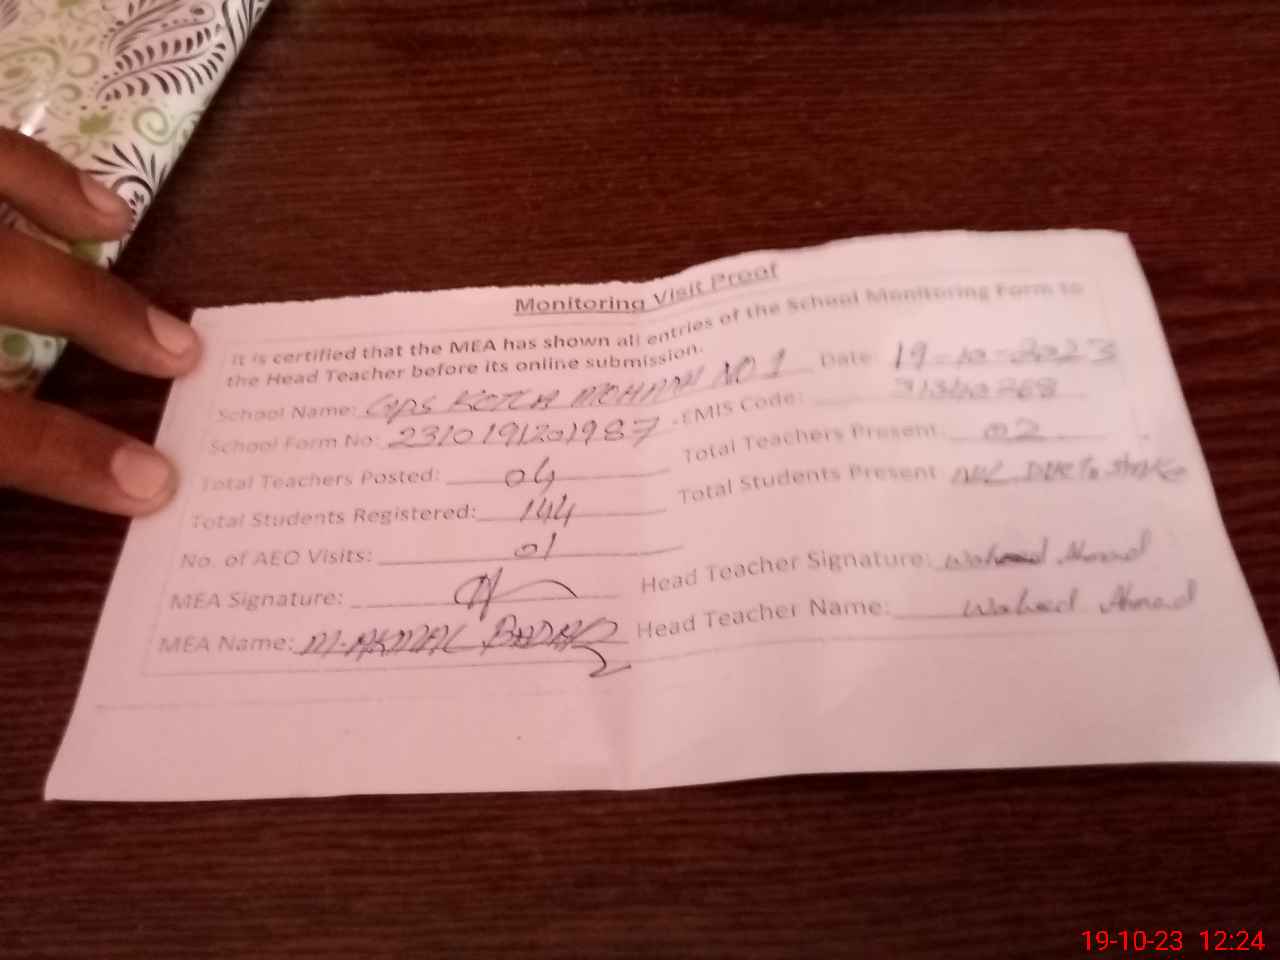 Monitoring Visit Proof
It is certified that the MEA has shown all entries of the School Monitoring Form to
the Head Teacher before its online submission.
School Name: GPS KOTLA NO 1 Date: 19-10-2023
School Form No: 2310191201987 EMIS Code: 31340268
Total Teachers Posted: 04 Total Teachers Present: 02
Total Students Registered: 144 Total Students Present NIL DUE To Strike
No. of AEO Visits: 01
MEA Signature: Head Teacher Signature: Waheed Ahmad
MEA Name: M. AKMAL BADAR Head Teacher Name: Waheed Ahmad
19-10-23 12:24